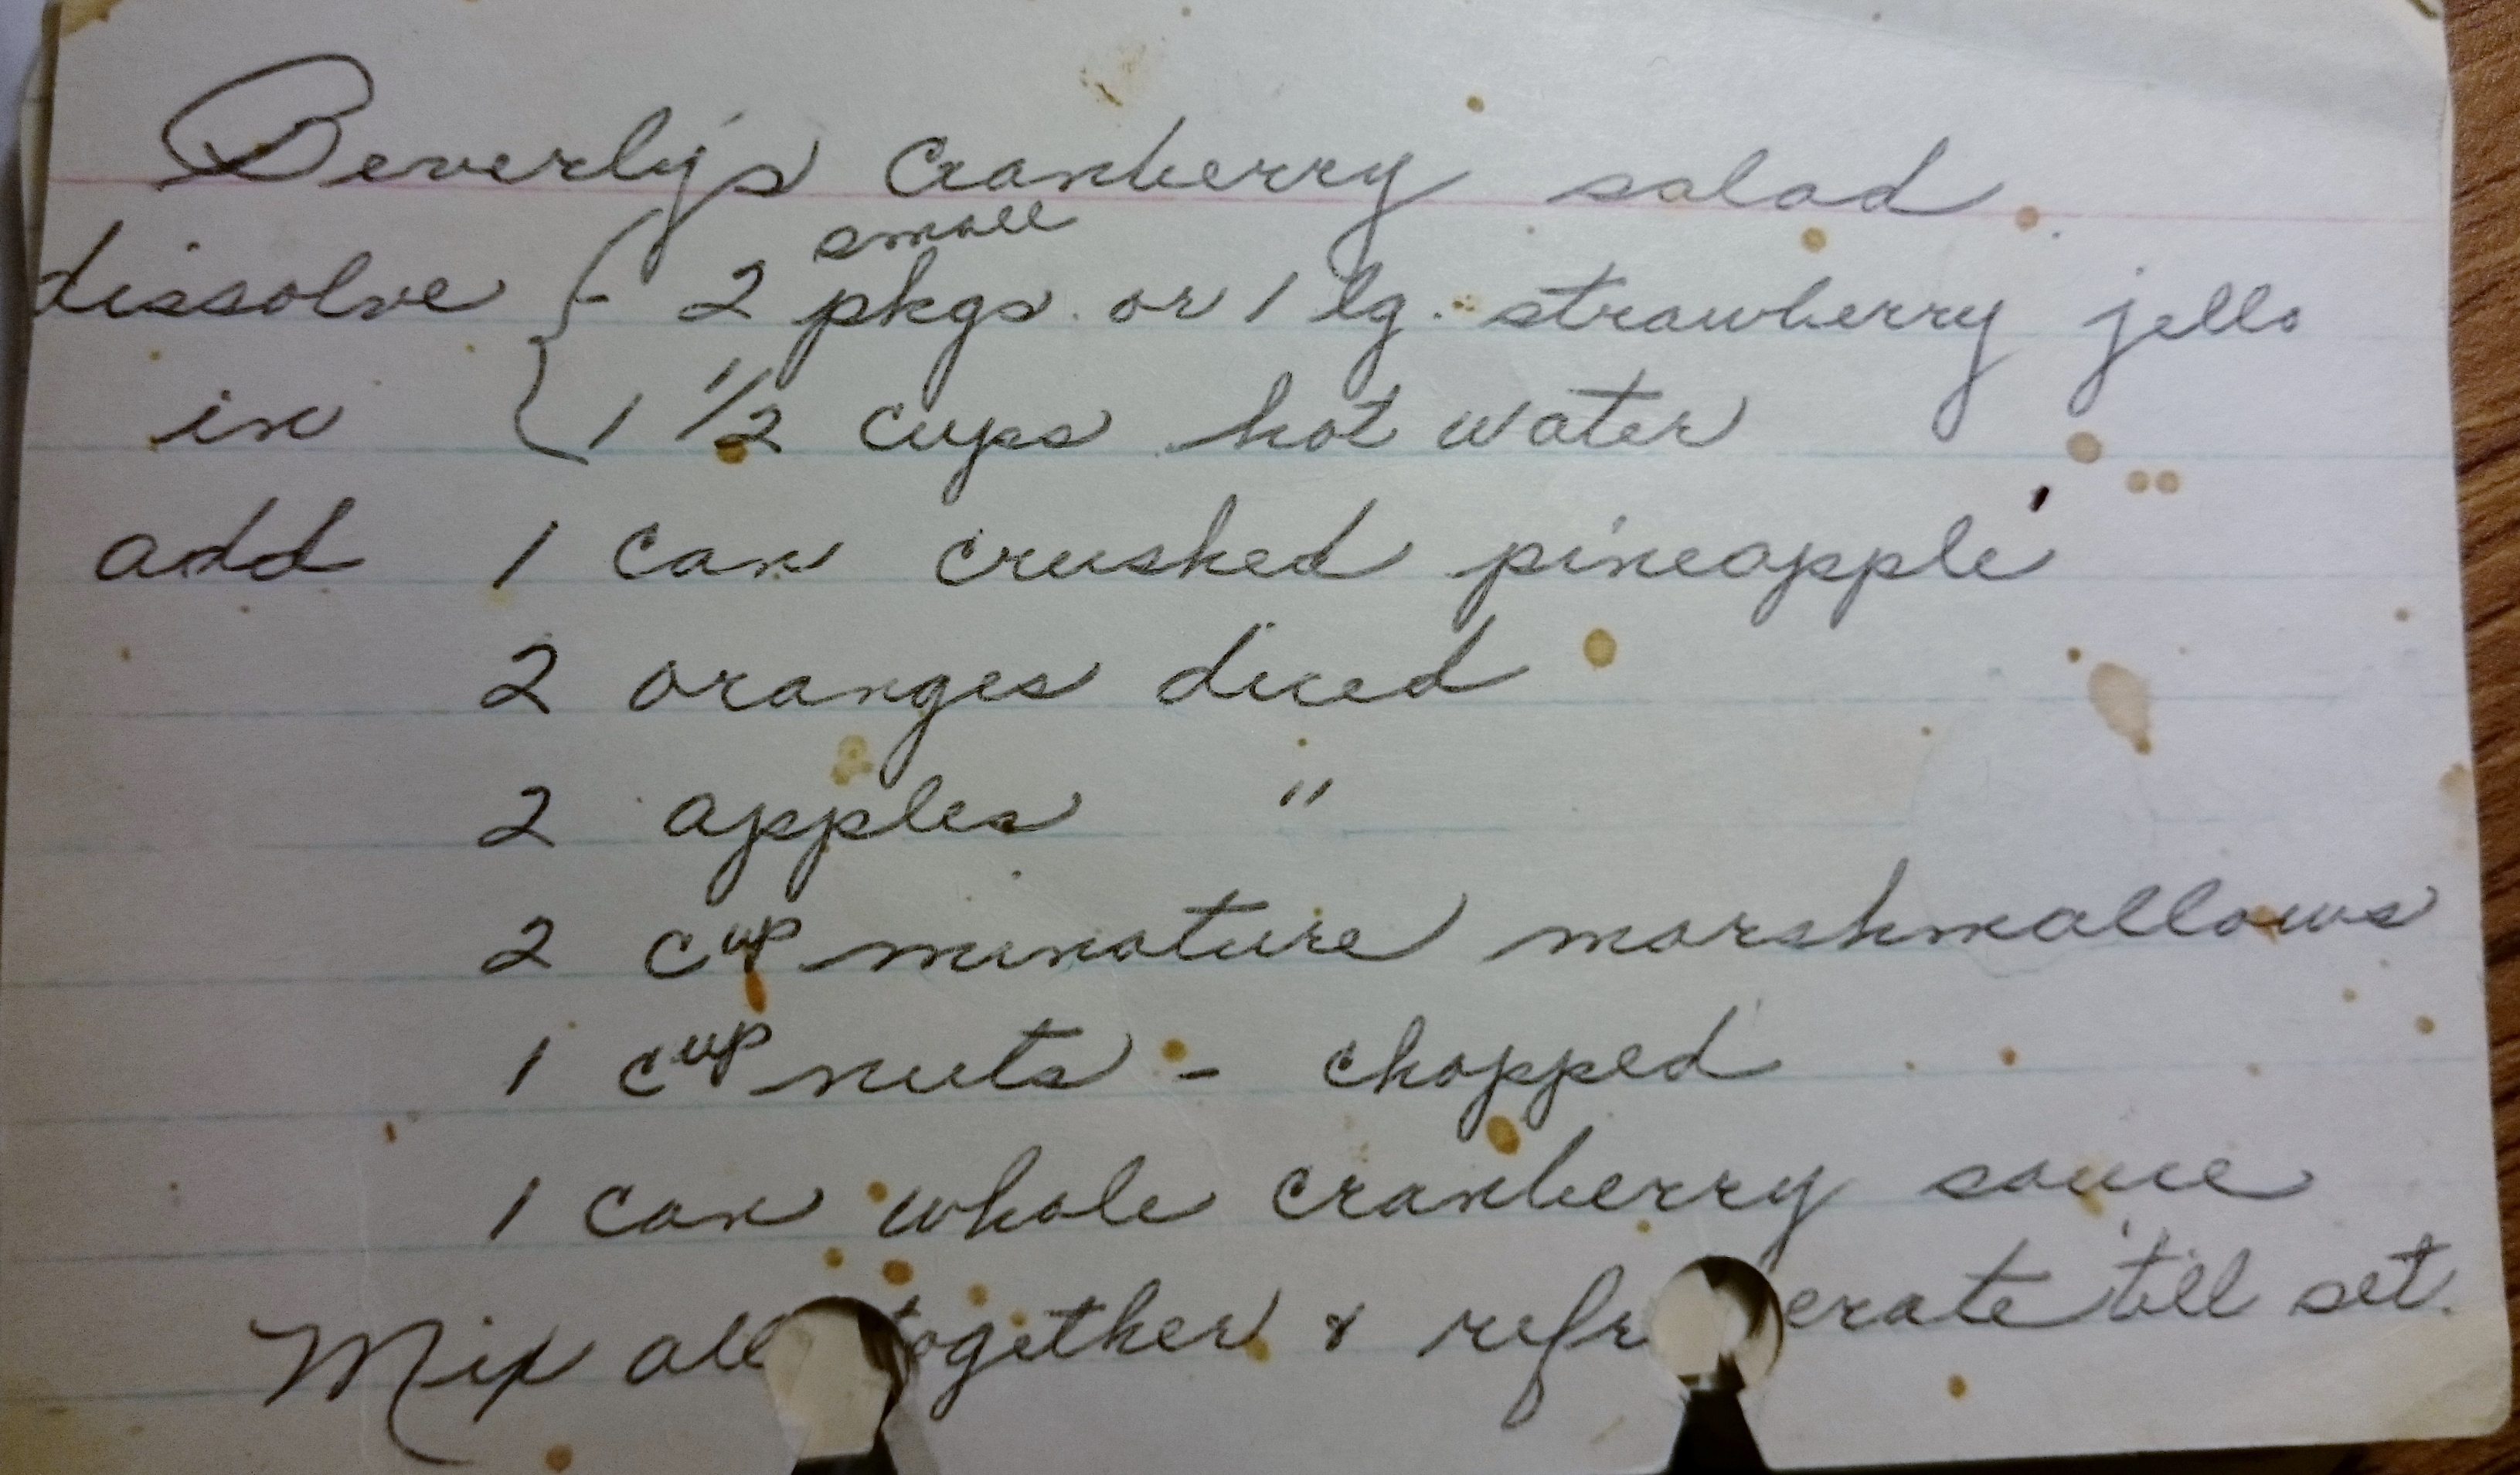 Beverly's Cranberry salad.
dissolve { 2 small pkgs. or 1 lg. strawberry jello
in { 1 1/2 cups hot water
add 1 can crushed pineapple
2 oranges diced
2 apples "
2 cup minature marshmallows
1 cup nuts - chopped
1 can whole cranberry sauce
Mix all together & refr erate 'till set.